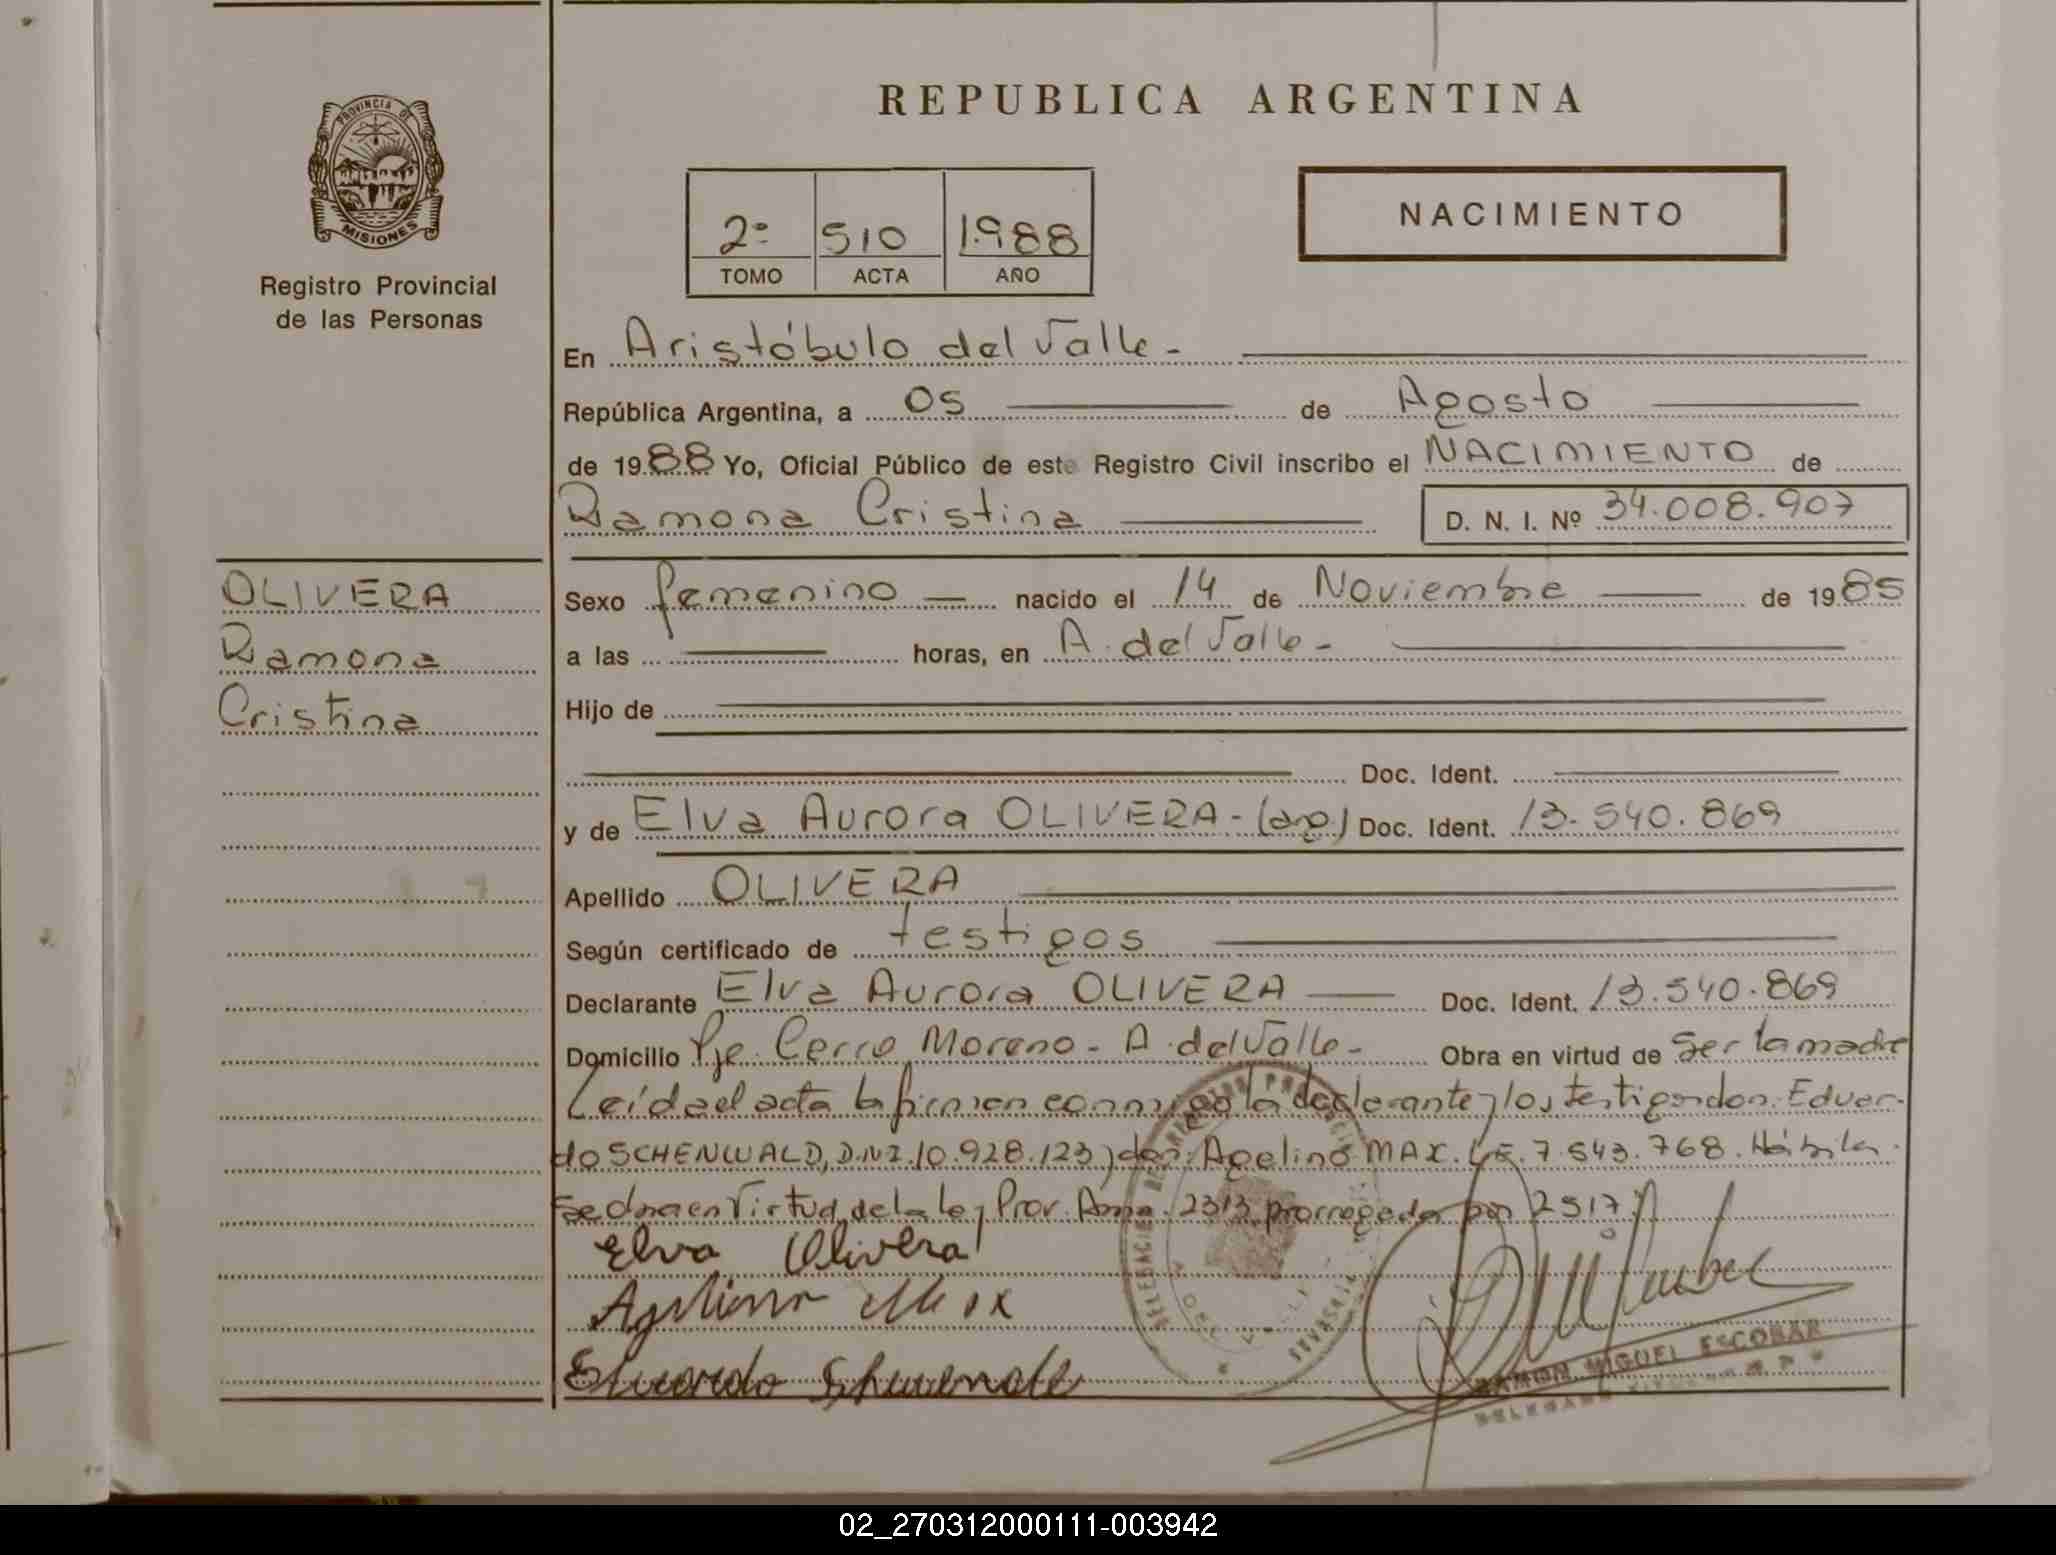 REPUBLICA ARGENTINA
PROVINCIA DE
MISIONES
Registro Provincial
de las Personas
2º 510 1.988
TOMO ACTA AÑO
NACIMIENTO
En Aristóbulo del Valle -
República Argentina, a 05 de Agosto
de 1988 Yo, Oficial Público de este Registro Civil inscribo el NACIMIENTO de
Ramona Cristina D. N. I. Nº 34.008.907
OLIVERA
Ramona
Cristina
Sexo femenino nacido el 14 de Noviembre de 1985
a las horas, en A. del Valle -
Hijo de
Doc. Ident.
y de Elva Aurora OLIVERA - (arg) Doc. Ident. 13.540.869
Apellido OLIVERA
Según certificado de testigos
Declarante Elva Aurora OLIVERA Doc. Ident. 13.540.869
Domicilio Pje. Cerro Moreno - A. del Valle - Obra en virtud de ser la madre
Leída el acta la firman conmigo la declarante y los testigos don Eduar-
do SCHENWALD, D.N.I. 10.928.123 y don Agelino MAX. L.E. 7.543.768. Hábiles.
Se dna en Virtud de la ley Prov. 2313 prorrogada por 2517.
Elva Olivera
RAMON MIGUEL ESCOBAR
02_270312000111-003942